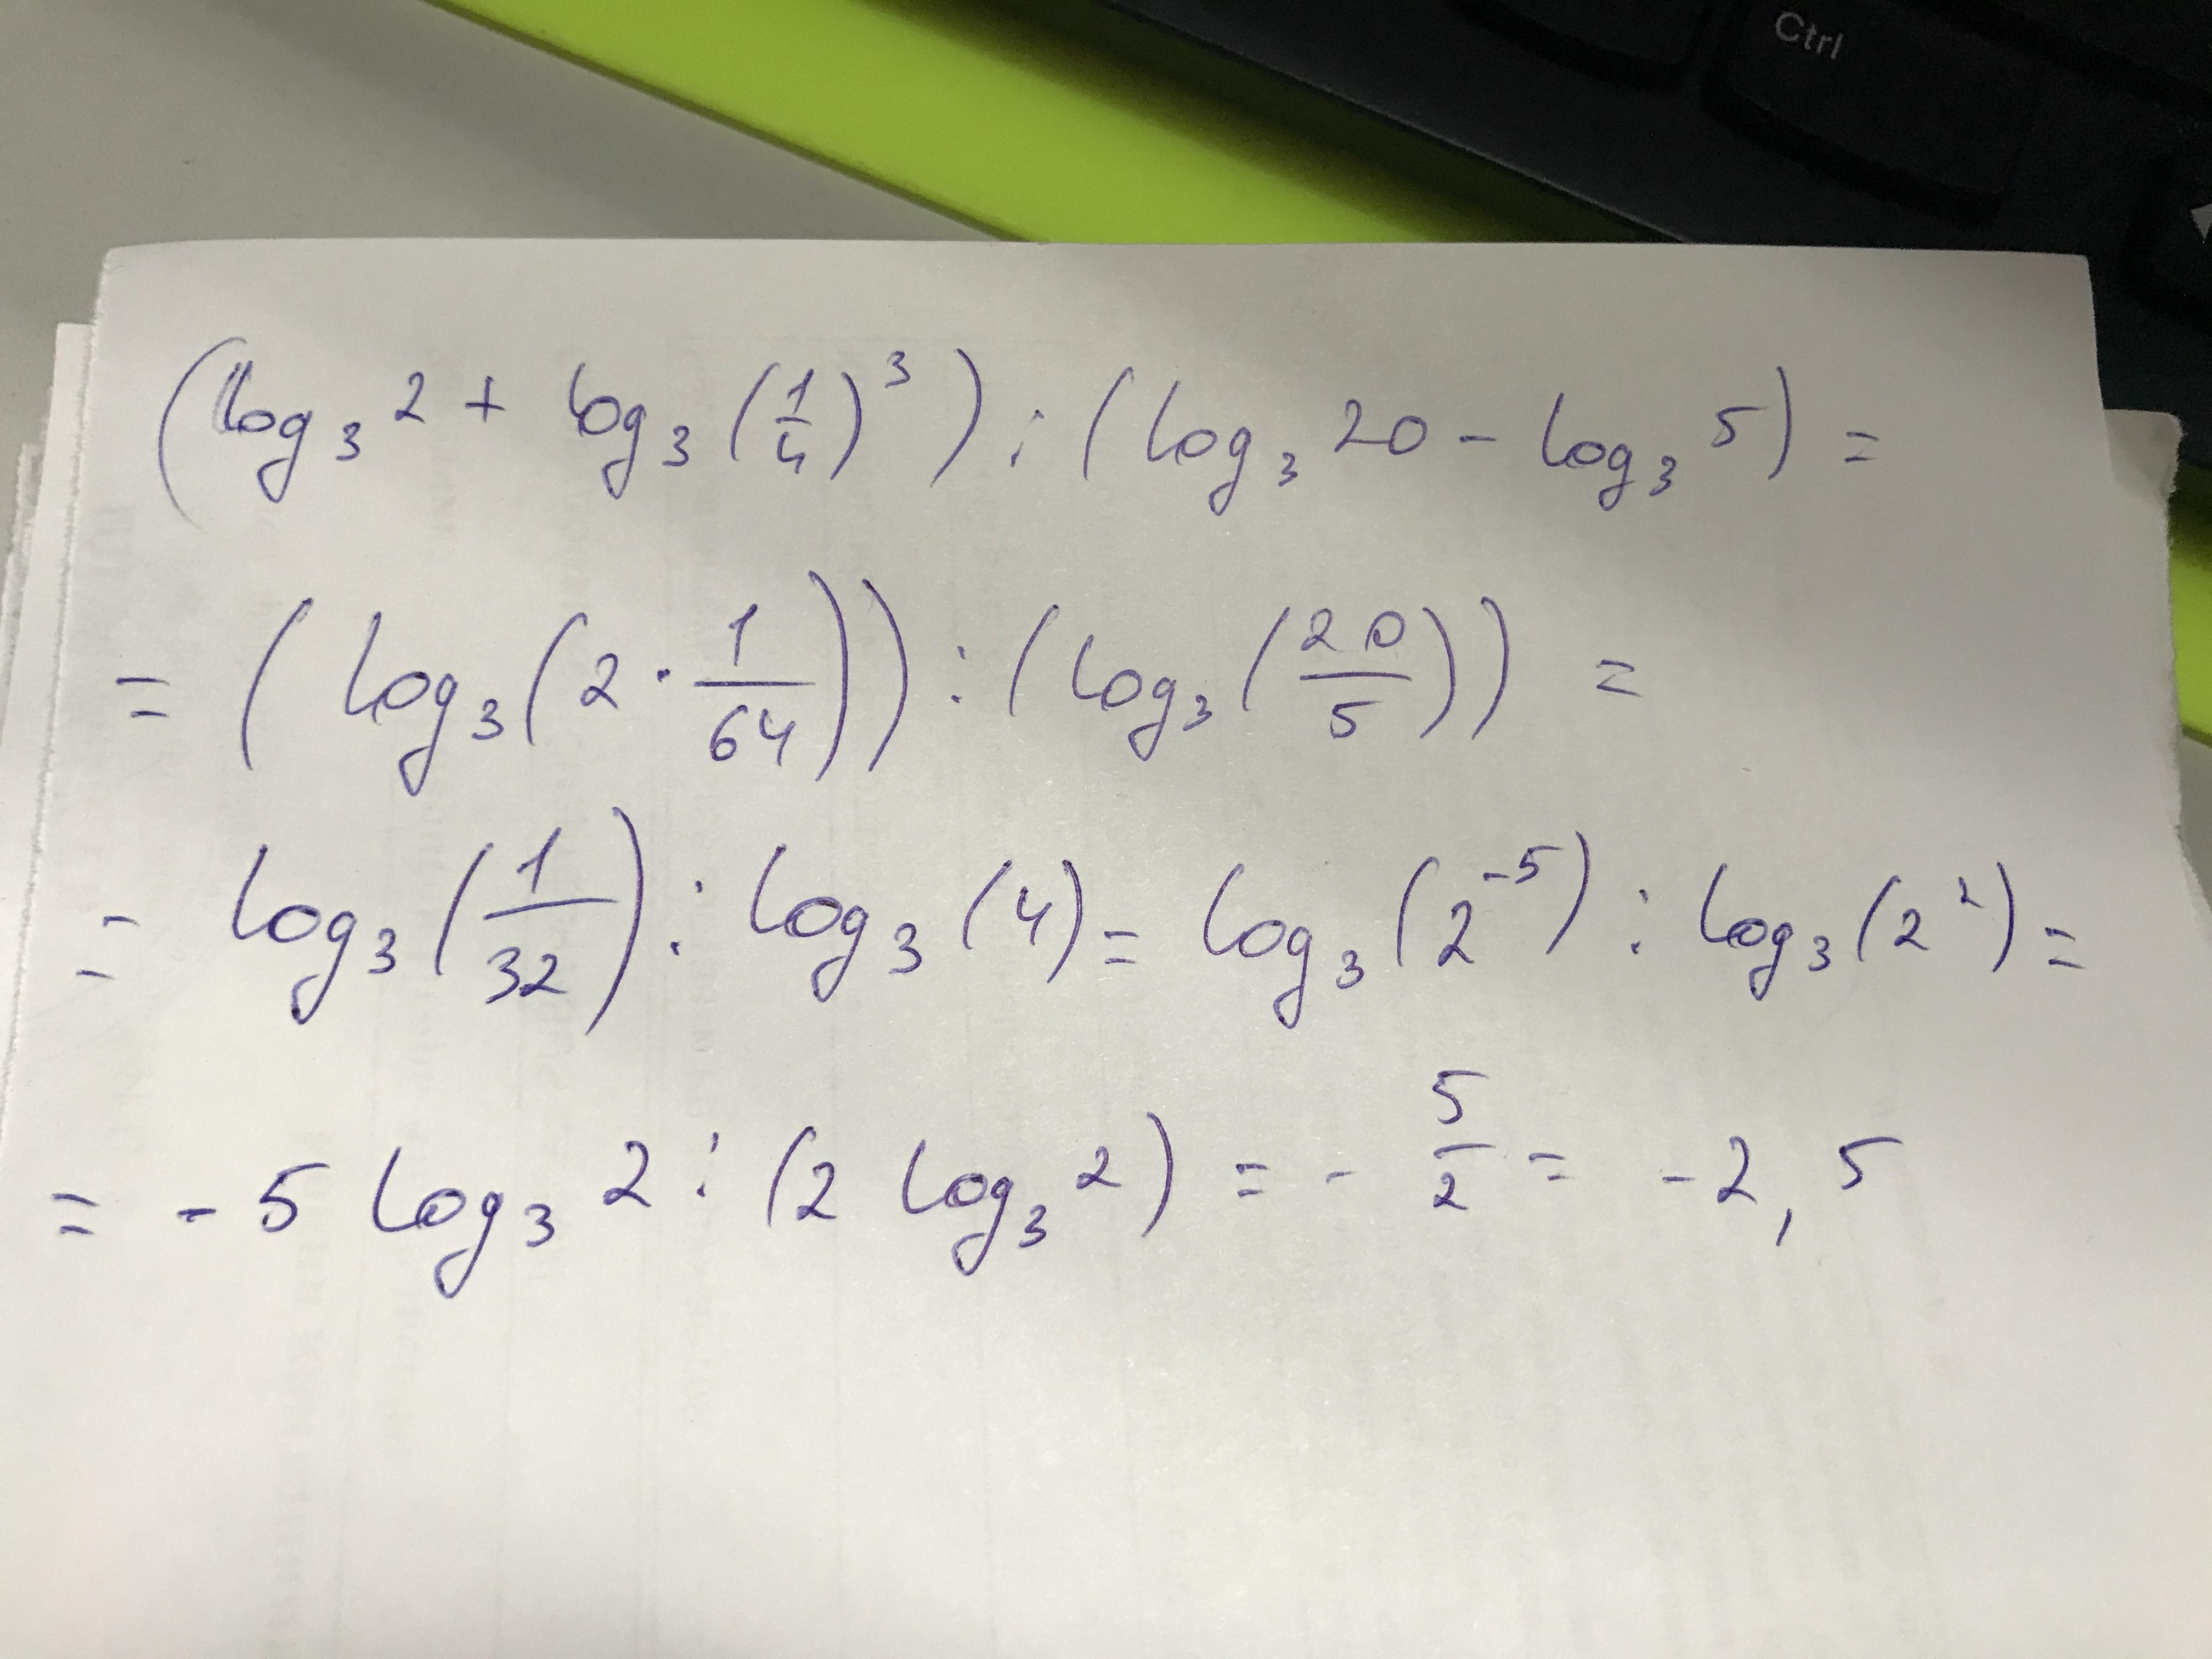 Ctrl
(log₃ 2 + log₃ (1/4)³) : (log₃ 20 - log₃ 5) =
= (log₃ (2 · 1/64)) : (log₃ (20/5)) =
= log₃ (1/32) : log₃ (4) = log₃ (2⁻⁵) : log₃ (2²) =
= - 5 log₃ 2 : (2 log₃ 2) = - 5/2 = - 2,5